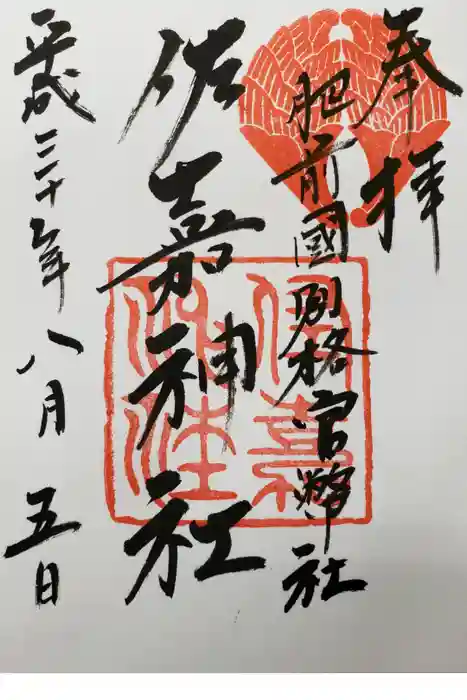 奉拝
肥前國別格官幣社
佐嘉神社
平成三十年八月五日
佐嘉
神社